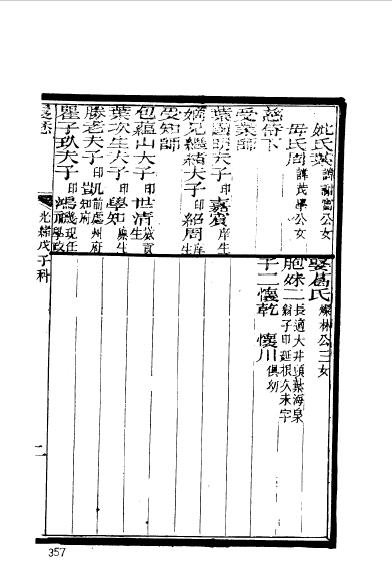 妣氏葉 諱謝富公女
母氏周 諱茂學公女
慈侍下
受業師
葉國明夫子 印嘉賓庠生
嫡兄繼緒夫子 印紹周庠生
受知師
包蘊山大子 印世清歲貢生
葉次生夫子 印學知廩生
滕老夫子 印凱前處州府知府
瞿子玖夫子 印鴻禨現任浙江學政
娶葛氏 燦林公三女
胞妹二 長適大井頭葉海泉翁子印延根久未字
子二懷乾 懷川俱幼
光緒戊子科
二
357